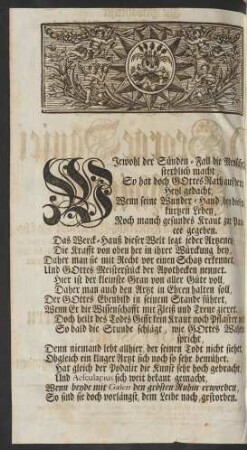 Jewohl der Sünden-Fall die Mensche
sterblich macht,
So hat doch GOttes Rath auf ihr
Heyl gedacht,
Wenn seine Wunder-Hand bey die
kurtzen Leben,
Noch manch gesundes Kraut zur
gegeben.
Das Werck-Hauß dieser Welt legt jeder Artzeney
Die Krafft von oben her in ihrer Würckung bey,
Daher man sie mit Recht vor einen Schatz erkennet,
Und GOttes Meisterstück der Apothecken nennet.
Hier ist der kleinste Gran von aller Güte voll,
Daher man auch den Artzt in Ehren halten soll,
Der GOttes Ebenbild in seinem Stande führet,
Wenn Er die Wissenschafft mit Fleiß und Treue zieret.
Doch heilt des Todes Gifft kein Kraut noch Pflaster
So bald die Stunde schlägt, wie GOttes
spricht,
Denn niemand lebt allhier, der seinen Todt nicht siehet,
Obgleich ein kluger Artzt sich noch so sehr bemühet.
Hat gleich der Podalir die Kunst sehr hoch gebracht,
Und Aesculapius sich weit bekant gemacht,
Wenn beyde mit Galen den grösten Ruhm erworben,
So sind sie doch vorlängst, dem Leibe nach, gestorben.